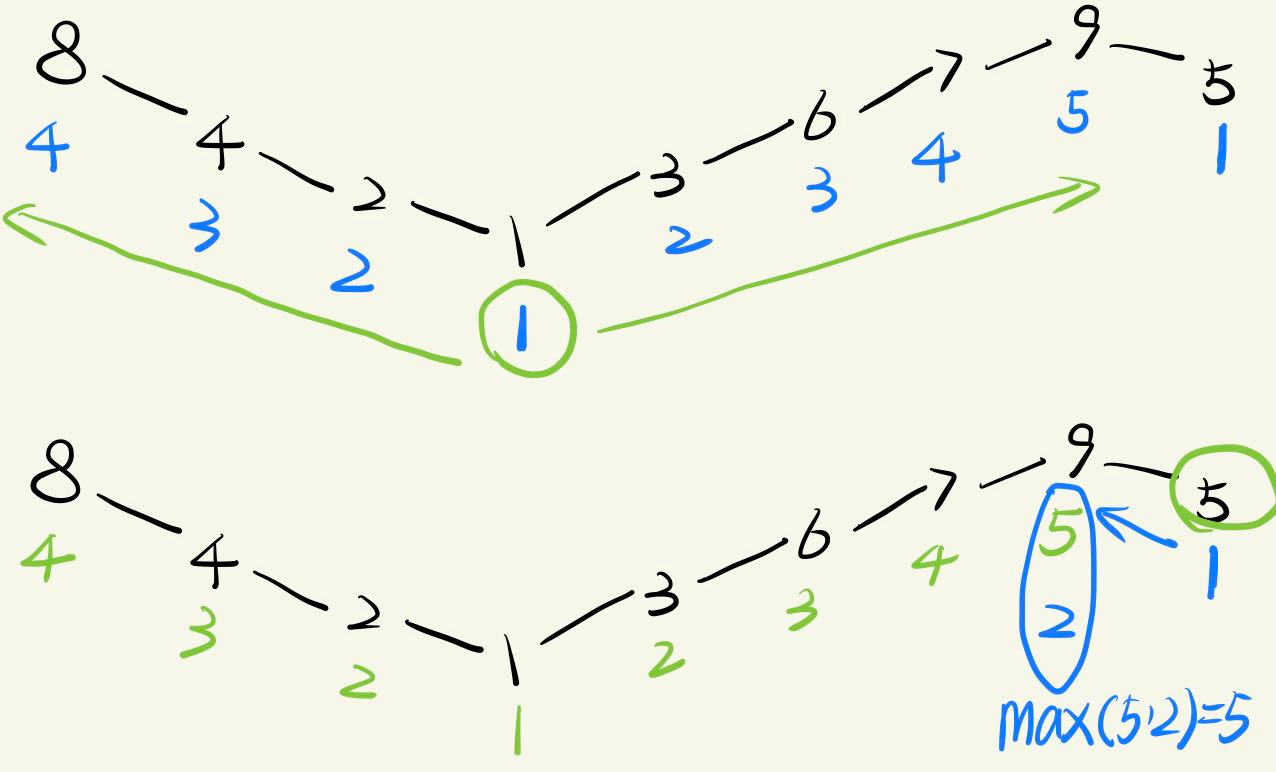 8 4 2 1 3 6 7 9 5
4 3 2 1 2 3 4 5 1
8 4 2 1 3 6 7 9 5
4 3 2 1 2 3 4 5 1
2
max(5,2)=5